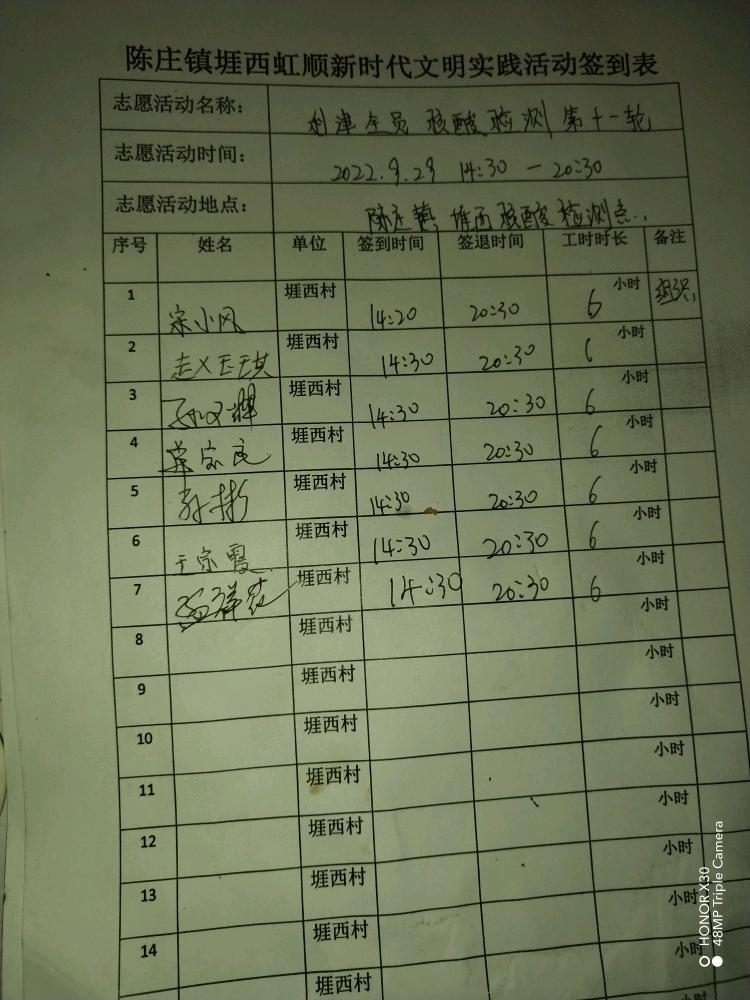 陈庄镇堐西虹顺新时代文明实践活动签到表
志愿活动名称： 利津全员核酸检测第十一轮
志愿活动时间： 2022.9.29 14:30 — 20:30
志愿活动地点： 陈庄镇堐西核酸检测点
序号 姓名 单位 签到时间 签退时间 工时时长 备注
1 宋小风 堐西村 14:20 20:30 6 小时
2 堐西村 14:30 20:30 6 小时
3 堐西村 14:30 20:30 6 小时
4 堐西村 14:30 20:30 6 小时
5 孙彬 堐西村 14:30 20:30 6 小时
6 于宗霞 堐西村 14:30 20:30 6 小时
7 堐西村 14:30 20:30 6 小时
8 堐西村 小时
9 堐西村 小时
10 堐西村 小时
11 堐西村 小时
12 堐西村 小时
13 堐西村 小时
14 堐西村 小时
堐西村 小时
HONOR X30
48MP Triple Camera